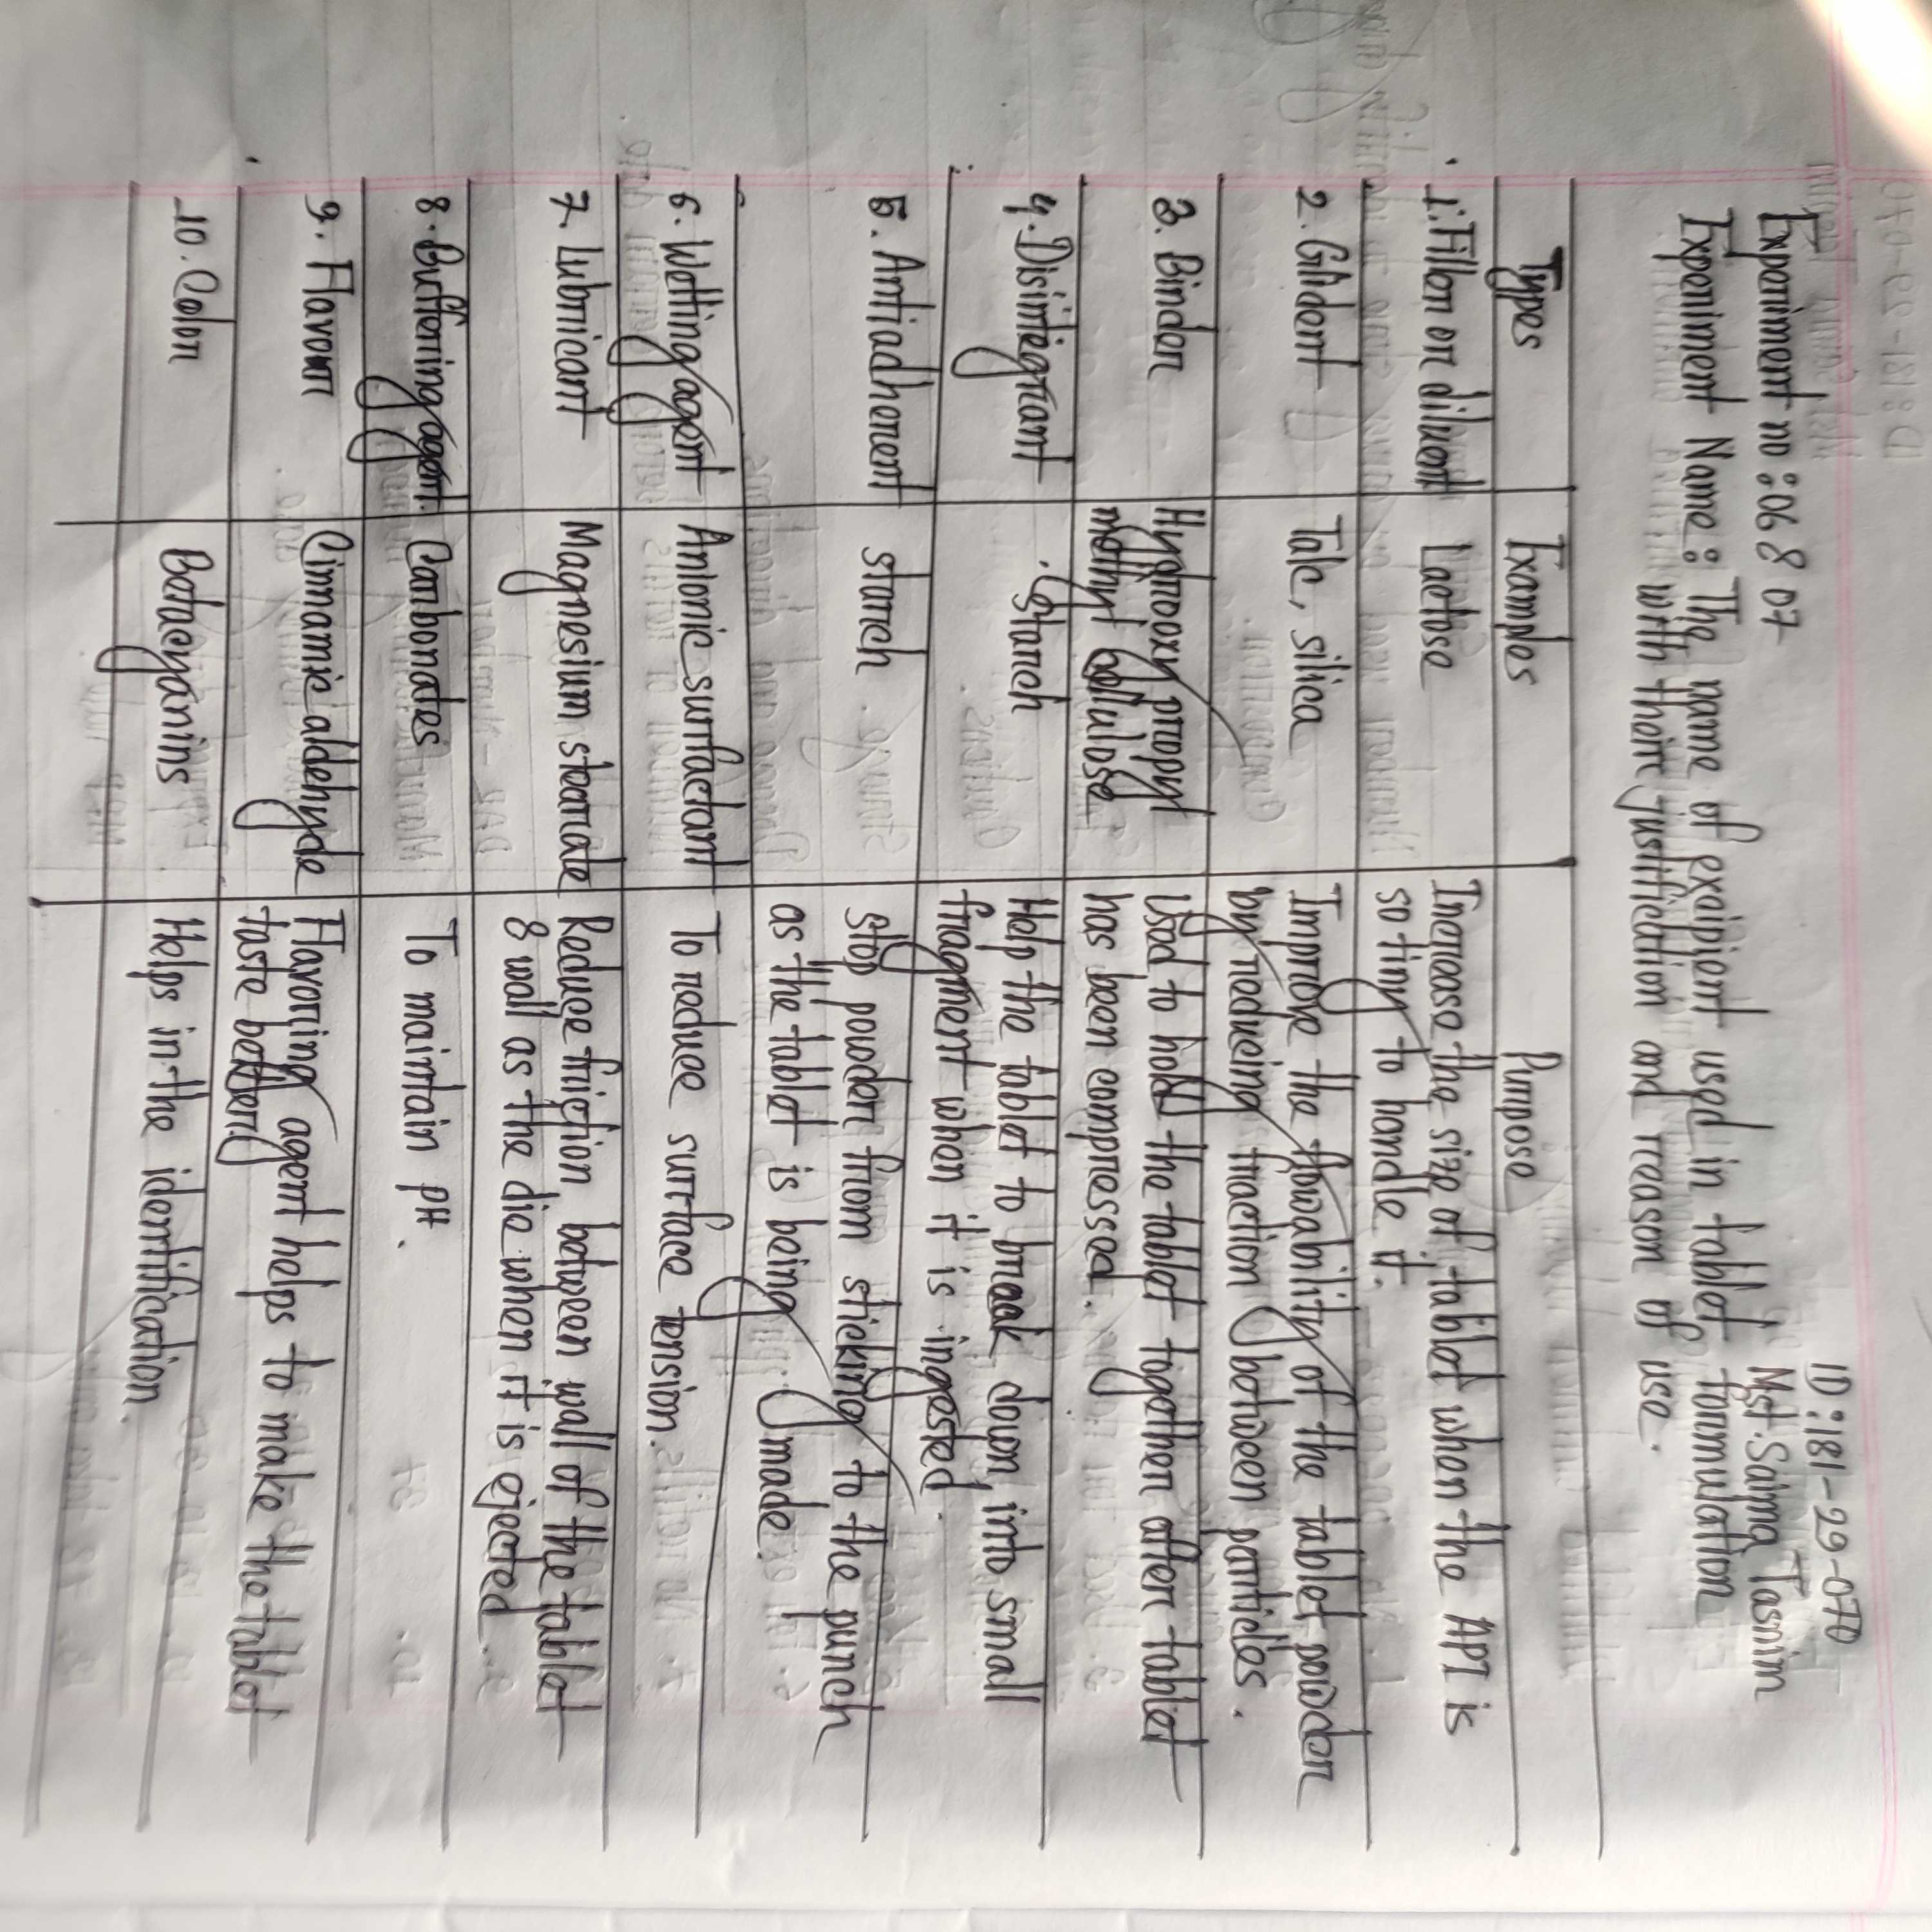 ID:181-29-070
Mst. Saima Tasnim
Experiment no:06 & 07
Experiment Name: The name of excipient used in tablet formulation
with their justification and reason of use.
Types Examples Purpose
1. Filler or diluent Lactose Increase the size of tablet when the API is
so tiny to handle it.
2. Glident Talc, silica Improve the flowability of the tablet powder
by reducing fraction between particles.
3. Binder Hydroxy propyl Used to hold the tablet together after tablet
methyl cellulose has been compressed.
4. Disintegrant Starch Help the tablet to break down into small
fragment when it is ingested
5. Antiadherent starch Stop powder from sticking to the punch
as the tablet is being made.
6. Wetting agent Anionic surfactant To reduce surface tension.
7. Lubricant Magnesium stearate Reduce friction between wall of the tablet
& wall as the die when it is ejected.
8. Buffering agent. Carbonates To maintain pH.
9. Flavour Cinnamic aldehyde Flavoring agent helps to make the tablet
taste better
10. Color Betacyanins Helps in the identification.